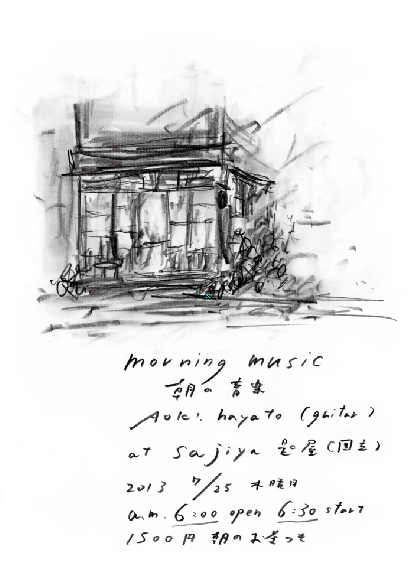 morning music
朝の音楽
Aoki hayato (guitar)
at sajiya 匙屋 (国立)
2013 7/25 木曜日
a.m. 6:00 open 6:30 start
1500円 朝のお茶つき